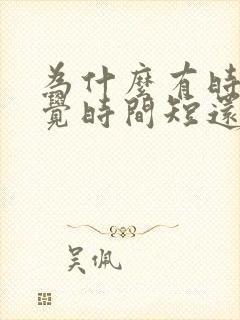 為什麼有時
覺時間短還
吴佩